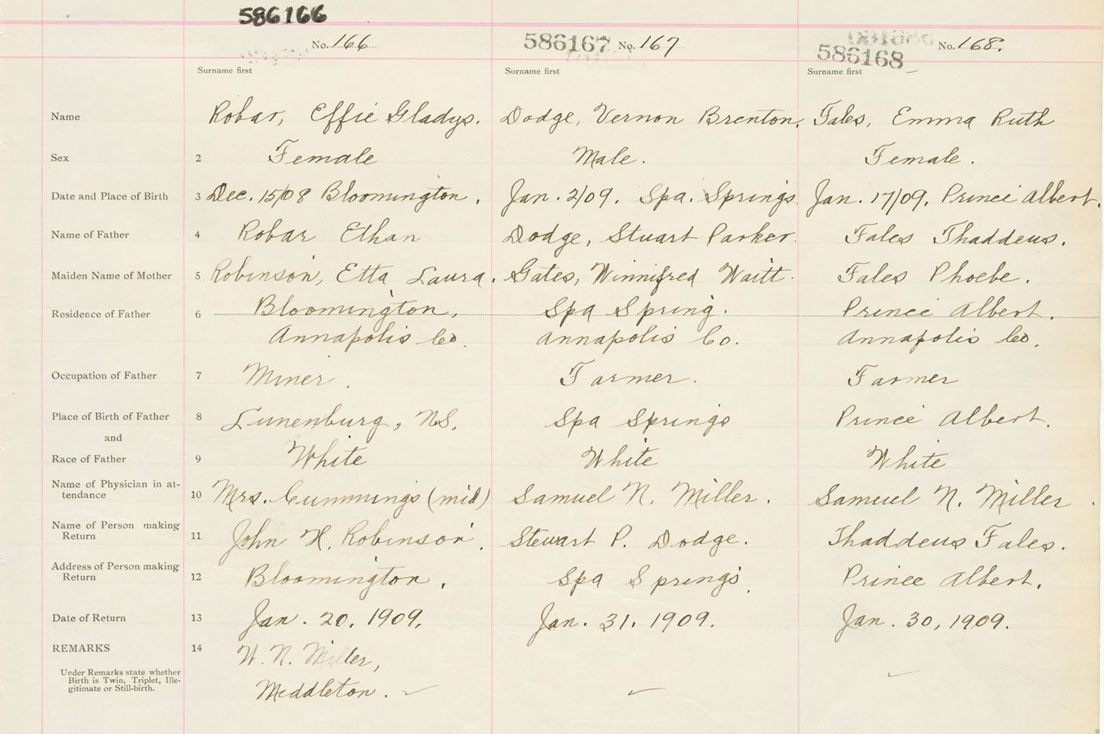 586166
No. 166 586167 No. 167 586168 No. 168.
Surname first Surname first Surname first
Name Robar, Effie Gladys. Dodge, Vernon Brenton. Fales, Emma Ruth
Sex 2 Female Male. Female.
Date and Place of Birth 3 Dec. 15/08 Bloomington. Jan. 2/09. Spa. Springs. Jan. 17/09. Prince Albert.
Name of Father 4 Robar Ethan Dodge, Stuart Parker. Fales Thaddeus.
Maiden Name of Mother 5 Robinson, Etta Laura. Gates, Winnifred Waitt. Fales Phoebe.
Residence of Father 6 Bloomington, Spa Spring. Prince Albert.
Annapolis Co. Annapolis Co. Annapolis Co.
Occupation of Father 7 Miner. Farmer. Farmer
Place of Birth of Father 8 Lunenburg, NS. Spa Springs Prince Albert.
and
Race of Father 9 White White White
Name of Physician in at-
tendance 10 Mrs. Cummings (mid) Samuel N. Miller. Samuel N. Miller.
Name of Person making
Return 11 John H. Robinson. Stewart P. Dodge. Thaddeus Fales.
Address of Person making
Return 12 Bloomington. Spa Springs. Prince Albert.
Date of Return 13 Jan. 20, 1909. Jan. 31, 1909. Jan. 30, 1909.
REMARKS 14 W. N. Miller,
Under Remarks state whether
Birth is Twin, Triplet, Ille-
gitimate or Still-birth.
Middleton.